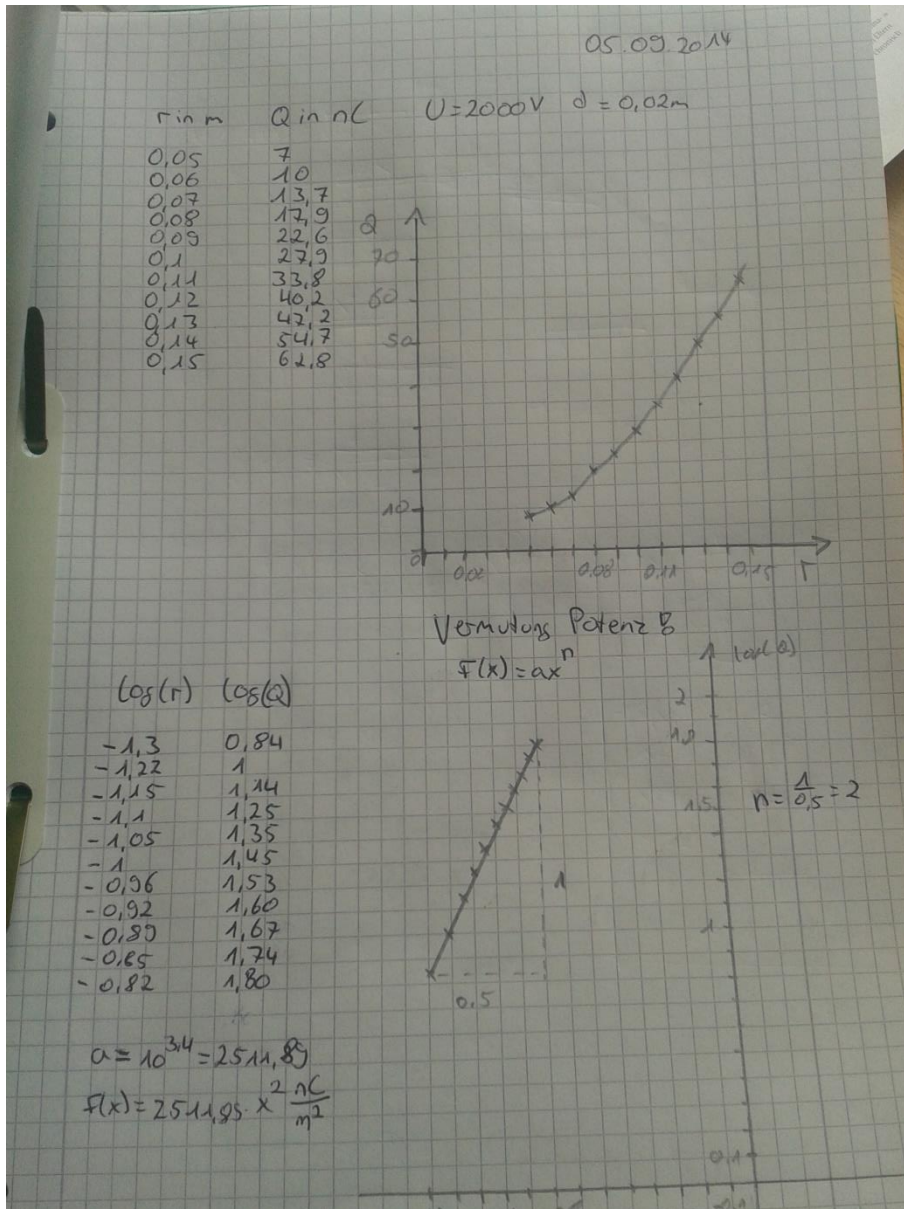 05.09.2014
r in m Q in nC U=2000V d=0,02m
0,05 7
0,06 10
0,07 13,7
0,08 17,9
0,09 22,6
0,1 27,9
0,11 33,8
0,12 40,2
0,13 47,2
0,14 54,7
0,15 62,8
Q
70
60
50
10
0 0,02 0,08 0,11 0,15 r
Vermutung Potenz
F(x)=ax^n
log(r) log(Q)
-1,3 0,84
-1,22 1
-1,15 1,14
-1,1 1,25
-1,05 1,35
-1 1,45
-0,96 1,53
-0,92 1,60
-0,89 1,67
-0,85 1,74
-0,82 1,80
2
1,8
1,5
1
0,1
1
0,5
n=1/0,5=2
a=10^3,4=2511,89
f(x)=2511,85·x^2 nC/m^2